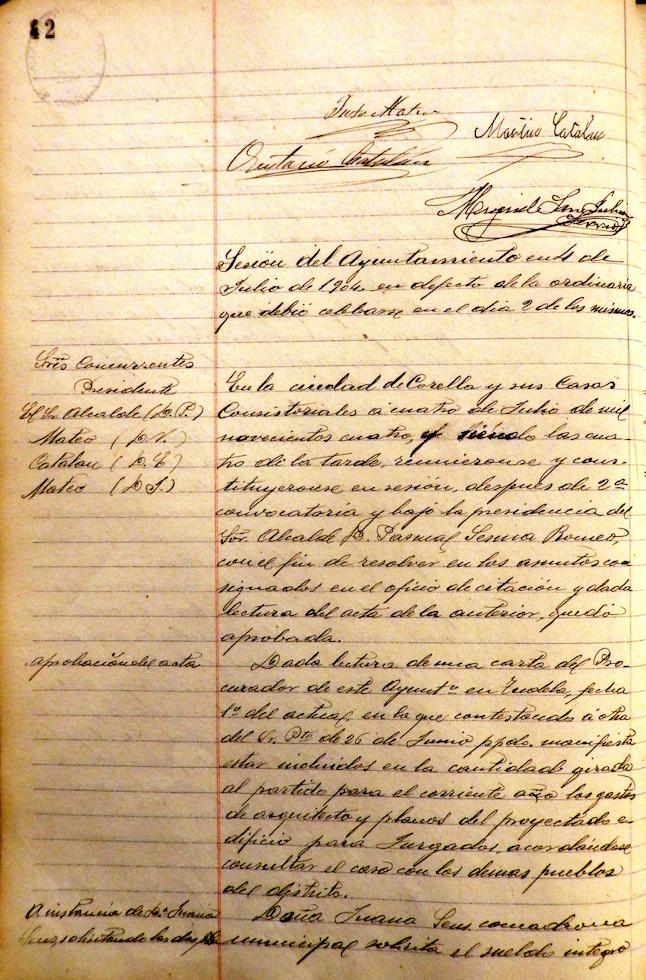 42
Justo Mateo
Martin Catalan
Gustavo Catalán
Sesión del Ayuntamiento en 4 de
Julio de 1904 en defecto de la ordinaria
que debió celebarse en el dia 2 de los mismos.
Sres Concurrentes
Presidente
El Sr. Alcalde (D. P.)
Mateo (D. V.)
Catalau (D. E)
Mateo (D J.)
En la ciudad de Corella y sus Casas
Consistoriales á cuatro de Julio de mil
novecientos cuatro, y siendo las cua-
tro de la tarde, reunieronse y cons-
tituyeronse en sesión, despues de 2ª
convocatoria y bajo la presidencia del
Sor. Alcalde D. Pascual Sesma Romeo,
con el fin de resolver en los asuntos con
signados en el oficio de citación y dada
lectura del acta de la anterior, quedó
aprobada.
Aprobación del acta
Dada lectura de una carta del Pro-
curador de este Ayuntº en Tudela, fecha
1º del actual, en la que contestando á otra
del Sr. Pte de 26 de Junio ppdo. manifiesta
estar incluidos en la cantidad girada
al partido para el corriente año los gastos
de arquitecto y planos del proyectado e-
dificio para Juzgados, acordándose
consultar el caso con los demas pueblos
del distrito.
A instancia de Dª Juana
Sanz solicitando los dos
Doña Juana Sanz comadrona
municipal solicita el sueldo integro